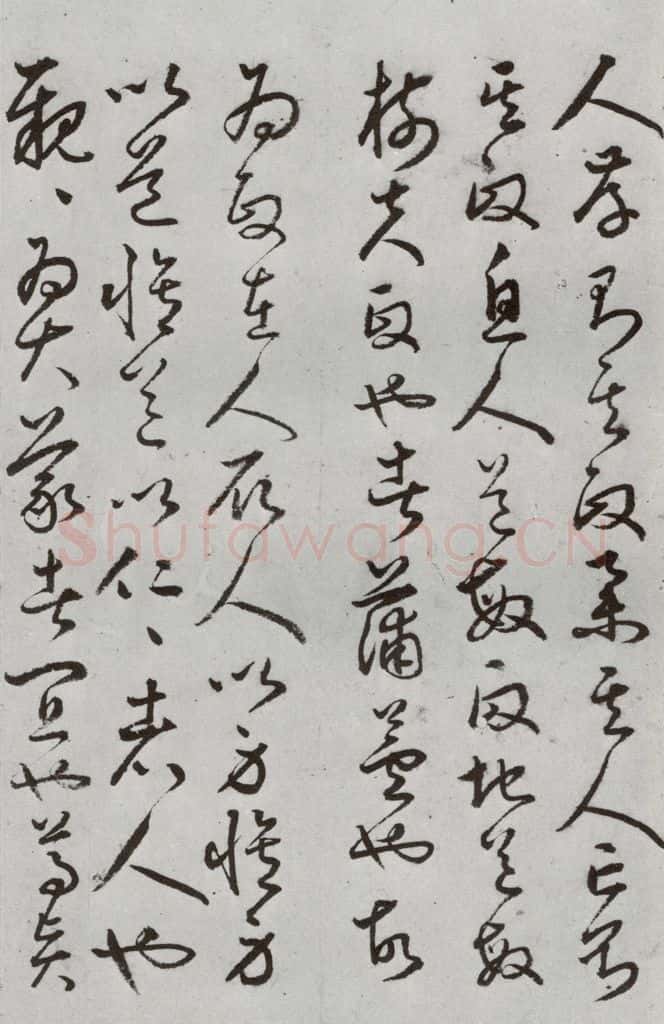 人存則其政舉其人亡則
其政息人道敏政地道敏
樹夫政也者蒲蘆也故
為政在人取人以身脩身
以道脩道以仁〻者人也
親〻為大義者宜也尊賢
Shufawang.CN